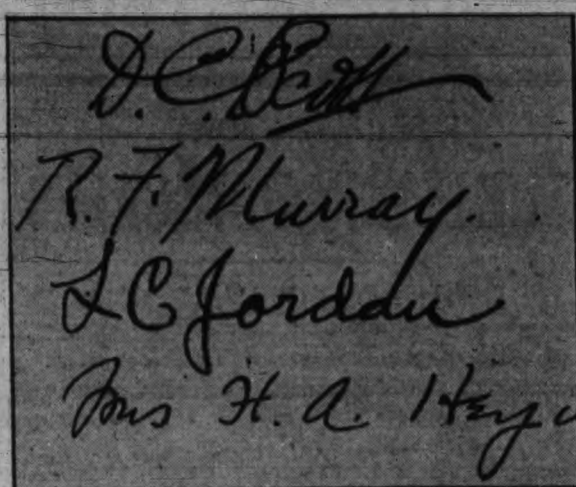 D. C. Scott
R. F. Murray.
L C Jordan
Mrs H. A.